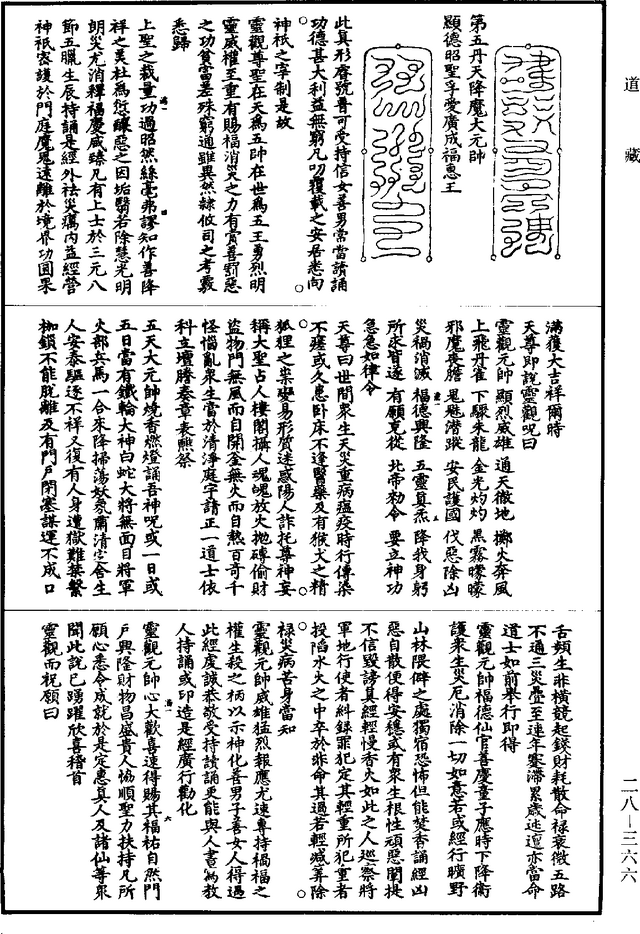 道藏
第五丹天降魔大元帥
顯德昭聖孚愛廣成福惠王
此真形睿號普可受持信女善男常當請誦
功德甚大利益無窮凡叨覆載之安居悉向
神祇之宰制是故
靈觀尊聖在天爲五帥在世爲五王勇烈明
靈威權至重有賜福消災之力有賞善罰惡
之功貧富莫殊窮通雖異然隸攸司之考覈
悉歸
上聖之裁量功過昭然絲毫弗謬知作善降
祥之美杜爲愆釀惡之因垢翳若除慧光明
朗災尤消釋福慶咸臻凡有上士於三元八
節五臘生辰持誦是經外袪災癘内益經營
神祇密護於門庭魔鬼遠離於境界功圓果
滿獲大吉祥爾時
天尊即說靈觀呪曰
靈觀元帥 顯烈威雄 通天徹地 擲火奔風
上飛丹雀 下驟朱龍 金光灼灼 黑霧曚曚
邪魔喪膽 鬼魅潛蹤 安民護國 伐惡除凶
災禍消滅 福德興隆 五靈真炁 降我身躬
所求皆遂 有願克從 北帝勑令 要立神功
急急如律令
天尊曰世間衆生天災重病瘟疫時行傳染
不瘥或久患卧床不逢醫藥及有猴犬之精
狐狸之祟變易形質迷惑陽人詐托尊神妄
稱大聖占人樓閣攝人魂魄放火拋磚偷財
盜物門無風而自開釜無火而自熱百奇千
怪惱亂衆生當於清淨庭宇請正一道士依
科立壇謄奏章表醮祭
五天大元帥燒香燃燈誦吾神呪或一日或
五日當有鐵輪大神白蛇大將無面目將軍
火部兵馬一合來降掃蕩妖氛肅清宅舍生
人安泰驅逐不祥又復有人身遭獄難禁繫
枷鎖不能脫離及有門戸閉塞謀運不成口
舌頻生非横競起錢財耗散命禄衰微五路
不通三災疊至連年蹇滯累歲迍邅亦當命
道士如前舉行即得
靈觀元帥福德仙官善慶童子應時下降衛
護衆生災厄消除一切如意若或經行曠野
山林隈僻之處獨宿恐怖但能焚香誦經凶
惡自散便得安穩或有衆生根性頑惡闡提
不信毀謗真經輕慢香火如此之人巡察將
軍地行使者糾錄罪犯定其輕重所犯重者
投陷水火之中卒於非命其過若輕減筭除
禄災病苦身當知
靈觀元帥威雄猛烈報應尤速專持禍福之
權生殺之柄以示神化善男子善女人得遇
此經虔誠恭敬受持讀誦更能與人書寫教
人持誦或印造是經廣行勸化
靈觀元帥心大歡喜速得賜其福祐自然門
戸興隆財物昌盛貴人協順聖力扶持凡所
願心悉令成就於是定惠真人及諸仙等衆
聞此說已踴躍欣喜稽首
靈觀而祝願曰
二八—三六六